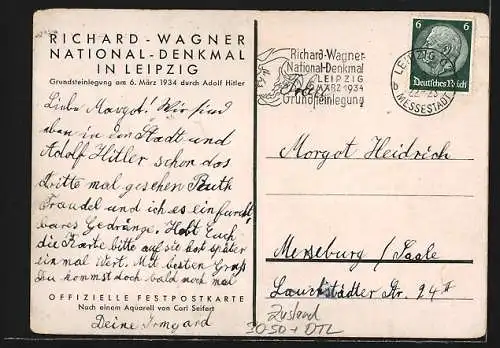 RICHARD - WAGNER
NATIONAL-DENKMAL
IN LEIPZIG
Grundsteinlegung am 6. März 1934 durch Adolf Hitler
Liebe Margot! Wir sind
eben in der Stadt und
Adolf Hitler schon das
Dritte mal gesehen Ruth
Traudel und ich es ein furcht
bares Gedränge. Hebt Euch
die Karte bitte auf sie hat später
ein mal Wert. Mit besten Gruß
Du kommst doch bald noch mal
OFFIZIELLE FESTPOSTKARTE
Nach einem Aquarell von Carl Seifert
Deine Irmgard
Richard-Wagner-
National-Denkmal
LEIPZIG
MÄRZ 1934
Grundsteinlegung
LEIPZIG
MESSESTADT
6 6
Deutsches Reich
Margot Heidrich
Merseburg / Saale
Lauchstädter Str. 24
Zustand
3050 + DTL